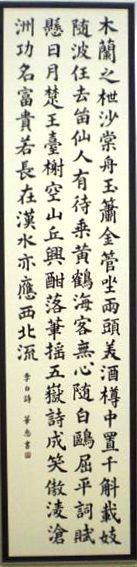 木蘭之枻沙棠舟玉簫金管坐兩頭美酒樽中置千斛載妓
隨波任去留仙人有待乘黃鶴海客無心隨白鷗屈平詞賦
懸日月楚王臺榭空山丘興酣落筆搖五嶽詩成笑傲凌滄
洲功名富貴若長在漢水亦應西北流
李白詩 書